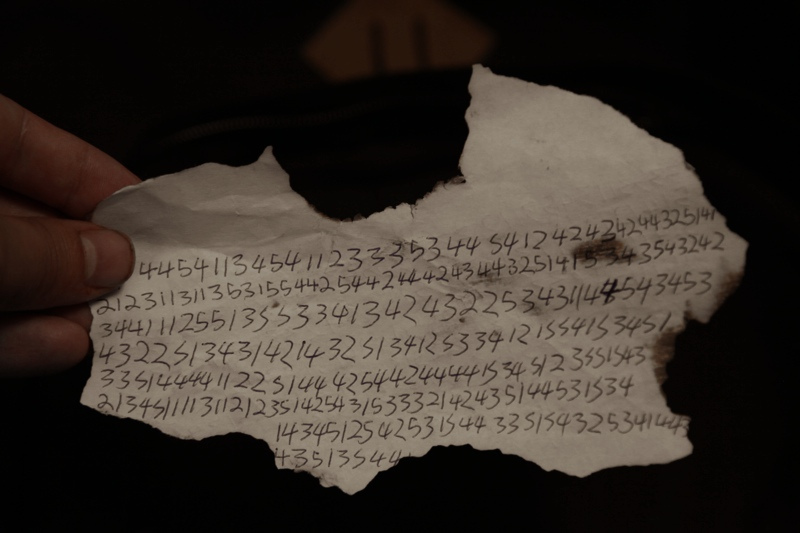 44541134541123335344541242424244325141
21231131135315544254424442434432514153435432 42
3441112551355334134243225343114854345 3
43225134314214325134125334121554153451
335144441122514442544244441534512355 1543
213451111311212351425431533321424351445315 34
143451254253154433515432534144 3
435135 44